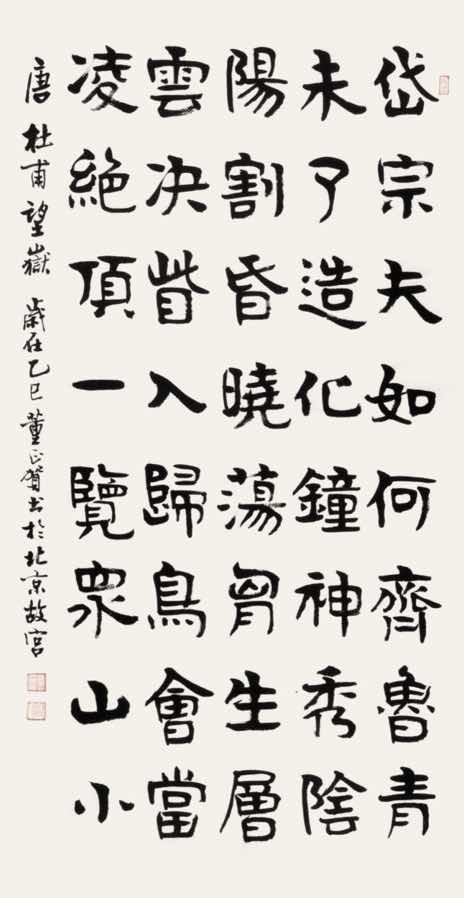 岱宗夫如何齊魯青
未了造化鐘神秀陰
陽割昏曉蕩胷生層
雲决眥入歸鳥會當
凌絶頂一覽眾山小
唐 杜甫望嶽 歲在乙巳董正賀书於北京故宮